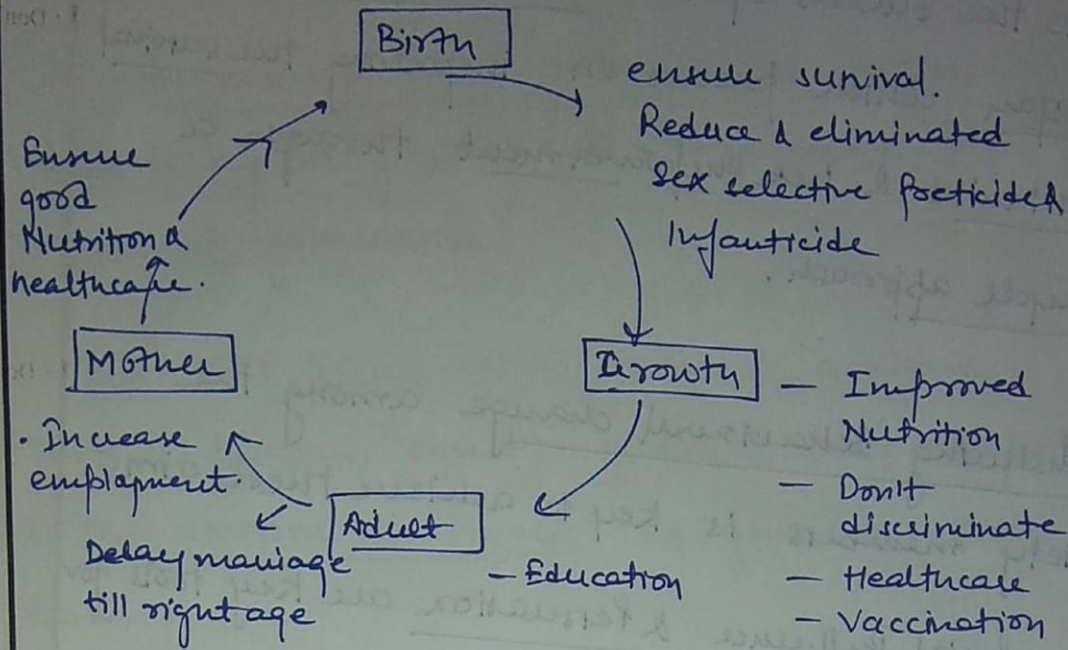 Birth
ensure survival.
Reduce & eliminated
sex selective foeticide &
Infanticide
Growth
— Improved
Nutrition
— Don't
discriminate
— Healthcare
— Vaccination
Adult
— Education
. Increase
employment.
Delay marriage
till right age
Mother
Ensure
good
Nutrition &
healthcare.